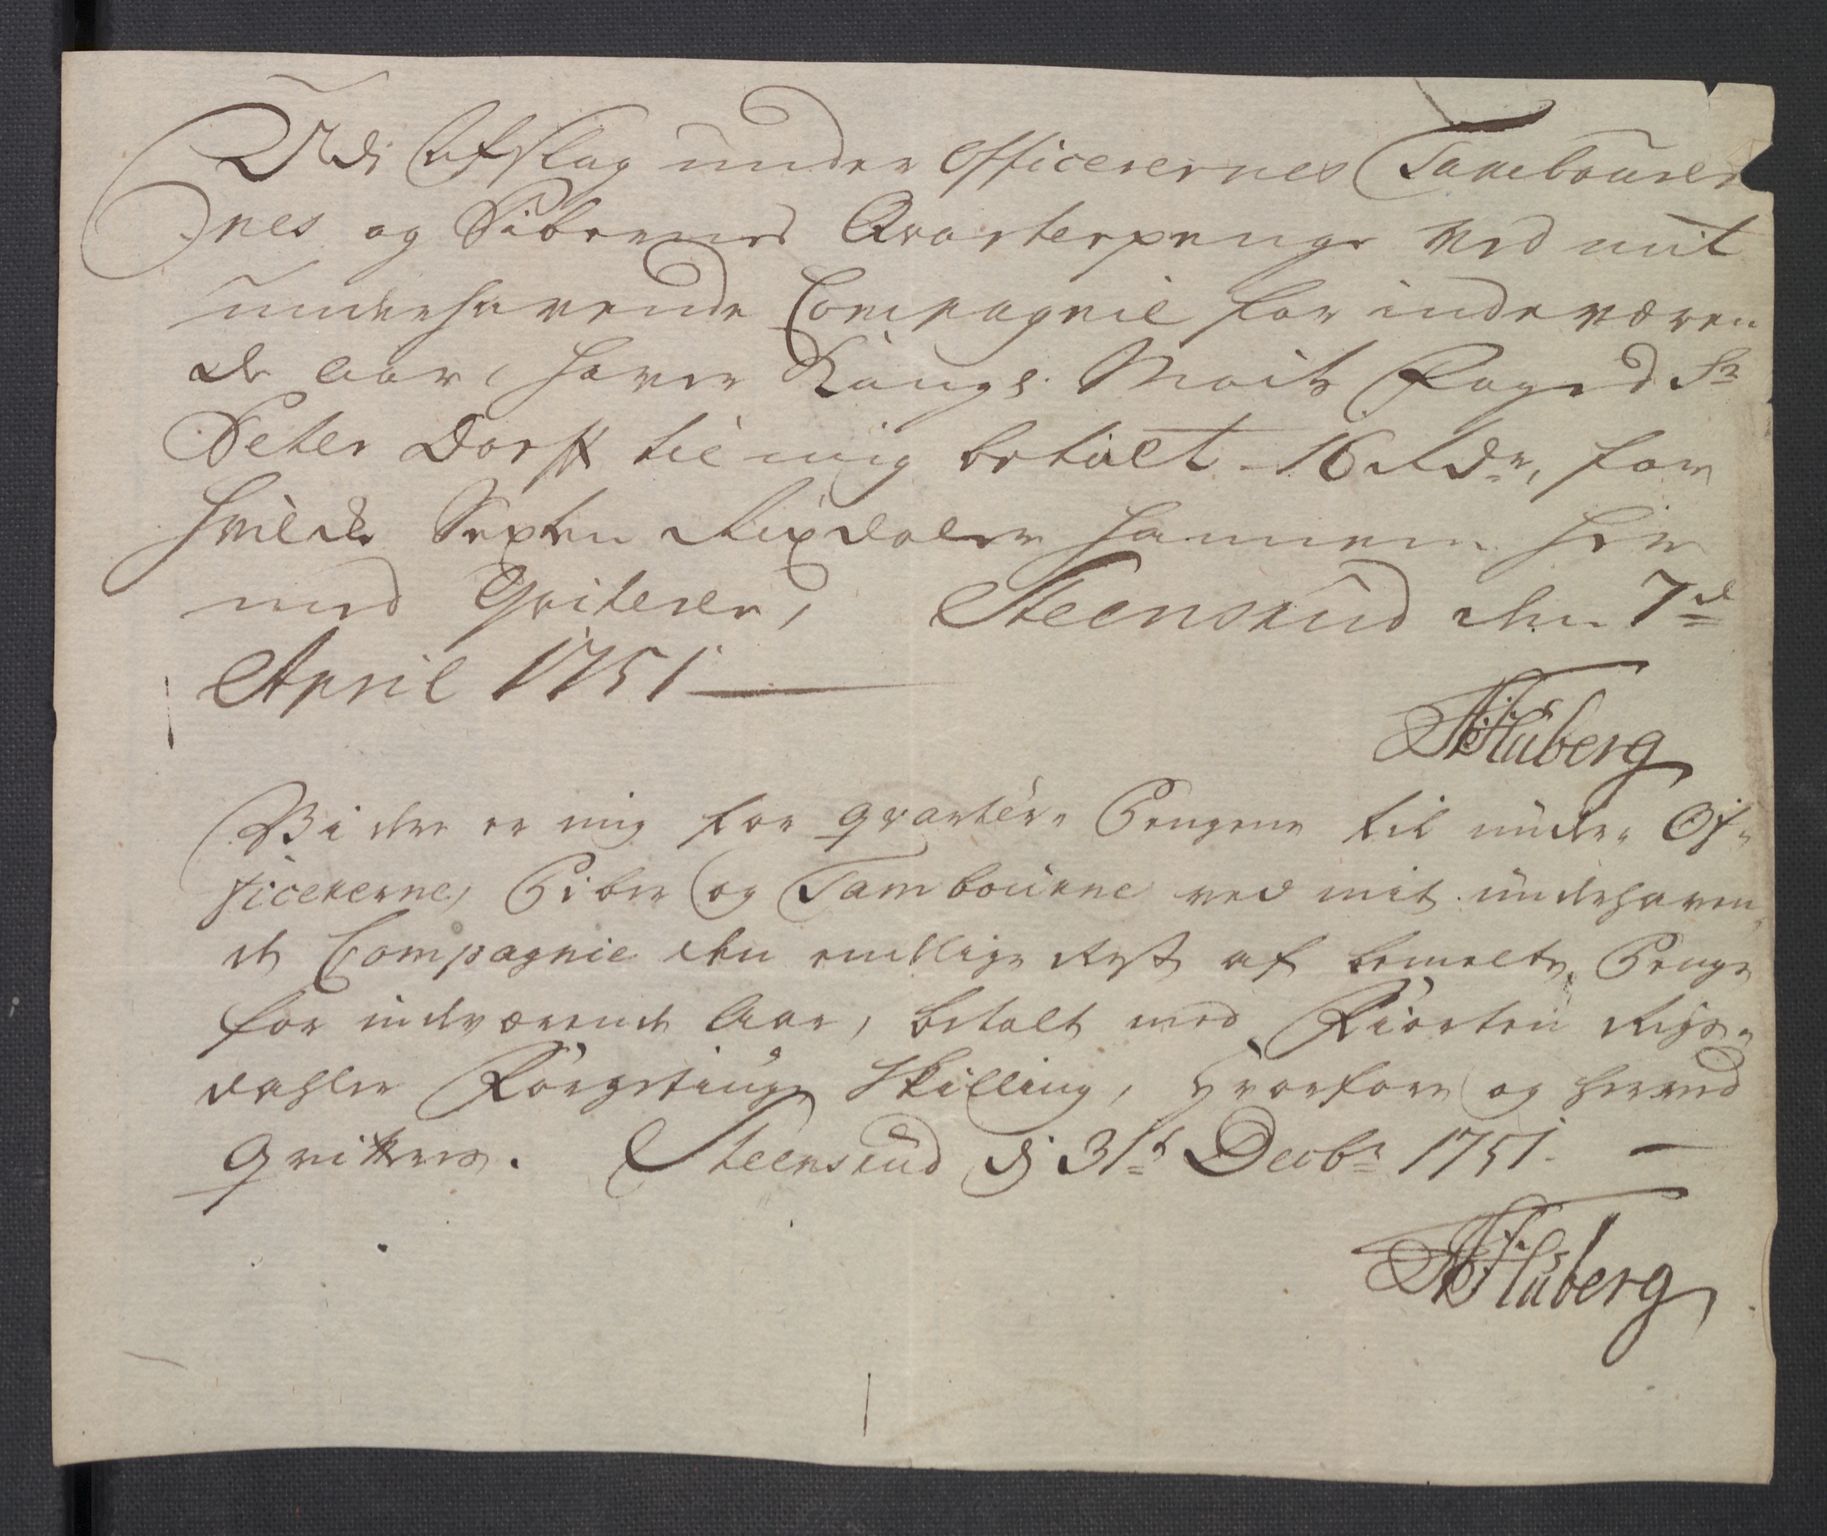 Udi Afslag under Officerernes Tambourer
nes og Pibernes Qvarterpenge ved mit
underhavende Compagnie for indeværen
de aar, haver Kongl. Maits Foged Sr
Peter Dorff til mig betalt 16 Rdr, for
hvilke Sexten Rixdaler hannem her
med Qviterer, Steensrud den 7de
April 1751
Huberg
Videre er mig for qvarteer Pengene til under Of-
ficererne, Piber og Tambourne ved mit underhaven-
de Compagnie den endelige Rest af bemelte Penge
for indeværende Aar, betalt med Fiorten Rigs-
dahler Förgetiuge Skilling, hvorfore og herved
qvitteris. Steensrud dj 31te Decbr 1751.
Huberg